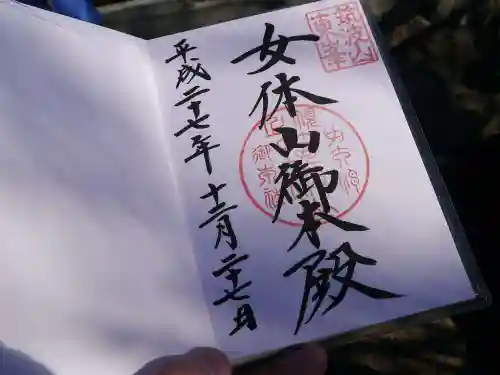 筑波山
東峯
女体山御本殿
平成二十七年十二月二十七日